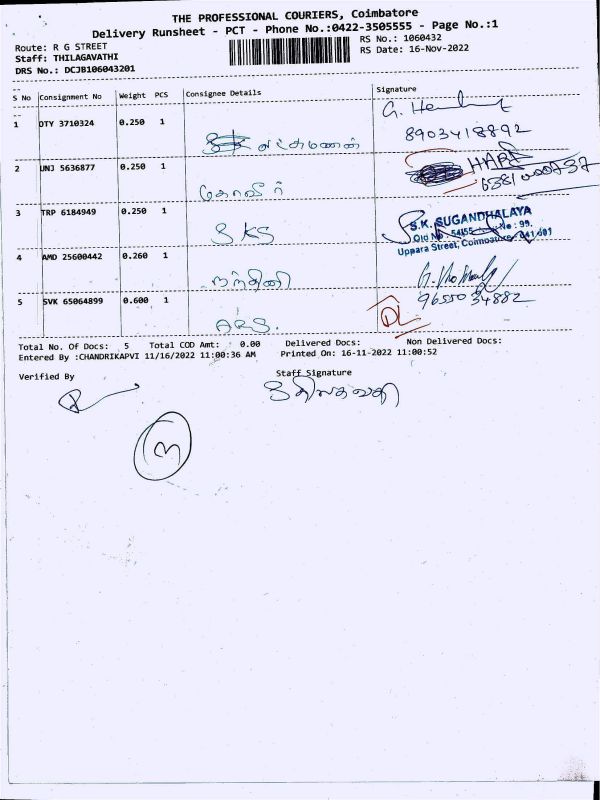 THE PROFESSIONAL COURIERS, Coimbatore
Delivery Runsheet - PCT - Phone No.:0422-3505555 - Page No.:1
Route: R G STREET
RS No.: 1060432
Staff: THILAGAVATHI
RS Date: 16-Nov-2022
DRS No.: DCJB106043201
S No Consignment No Weight PCS Consignee Details Signature
1 DTY 3710324 0.250 1
லட்சுமணன்
8903418892
2 UNJ 5636877 0.250 1
HARE
3 TRP 6184949 0.250 1
SKS
S.K. SUGANDHALAYA
Uppara Street, Coimbatore
4 AMD 25600442 0.260 1
நந்தினி
5 SVK 65064899 0.600 1
ARS.
9655034882
DL
Total No. Of Docs: 5 Total COD Amt: 0.00 Delivered Docs: Non Delivered Docs:
Entered By :CHANDRIKAPVI 11/16/2022 11:00:36 AM Printed On: 16-11-2022 11:00:52
Verified By Staff Signature
திலகவதி